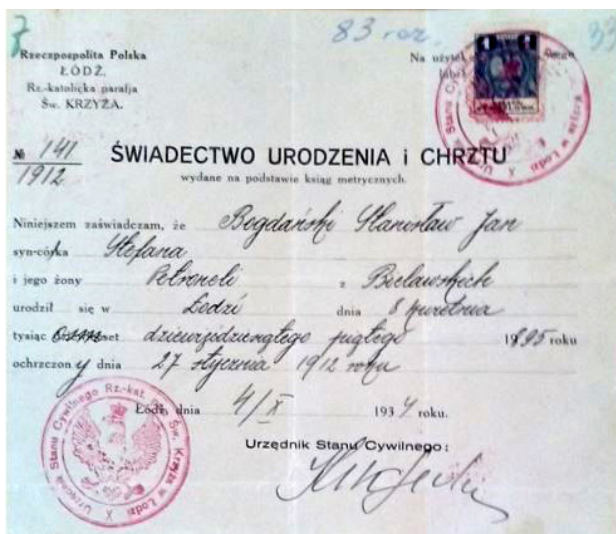 83 roz.
Rzeczpospolita Polska
ŁÓDŹ.
Rz.-katolicka parafja
Św. KRZYŻA.
Na użytek
№ 141
1912
ŚWIADECTWO URODZENIA i CHRZTU
wydane na podstawie ksiąg metrycznych.
Niniejszem zaświadczam, że Bogdański Stanisław Jan
syn-córka Stefana
i jego żony Petroneli z Bielawskich
urodził się w Łodzi dnia 8 kwietnia
tysiąc set dziewięćdziesiątego piątego 1895 roku
ochrzczony dnia 27 stycznia 1912 roku
Łódź, dnia 4/X 1934 roku.
Urzędnik Stanu Cywilnego:
Urzędnik Stanu Cywilnego Rz.-kat. par. Św. Krzyża w Łodzi X